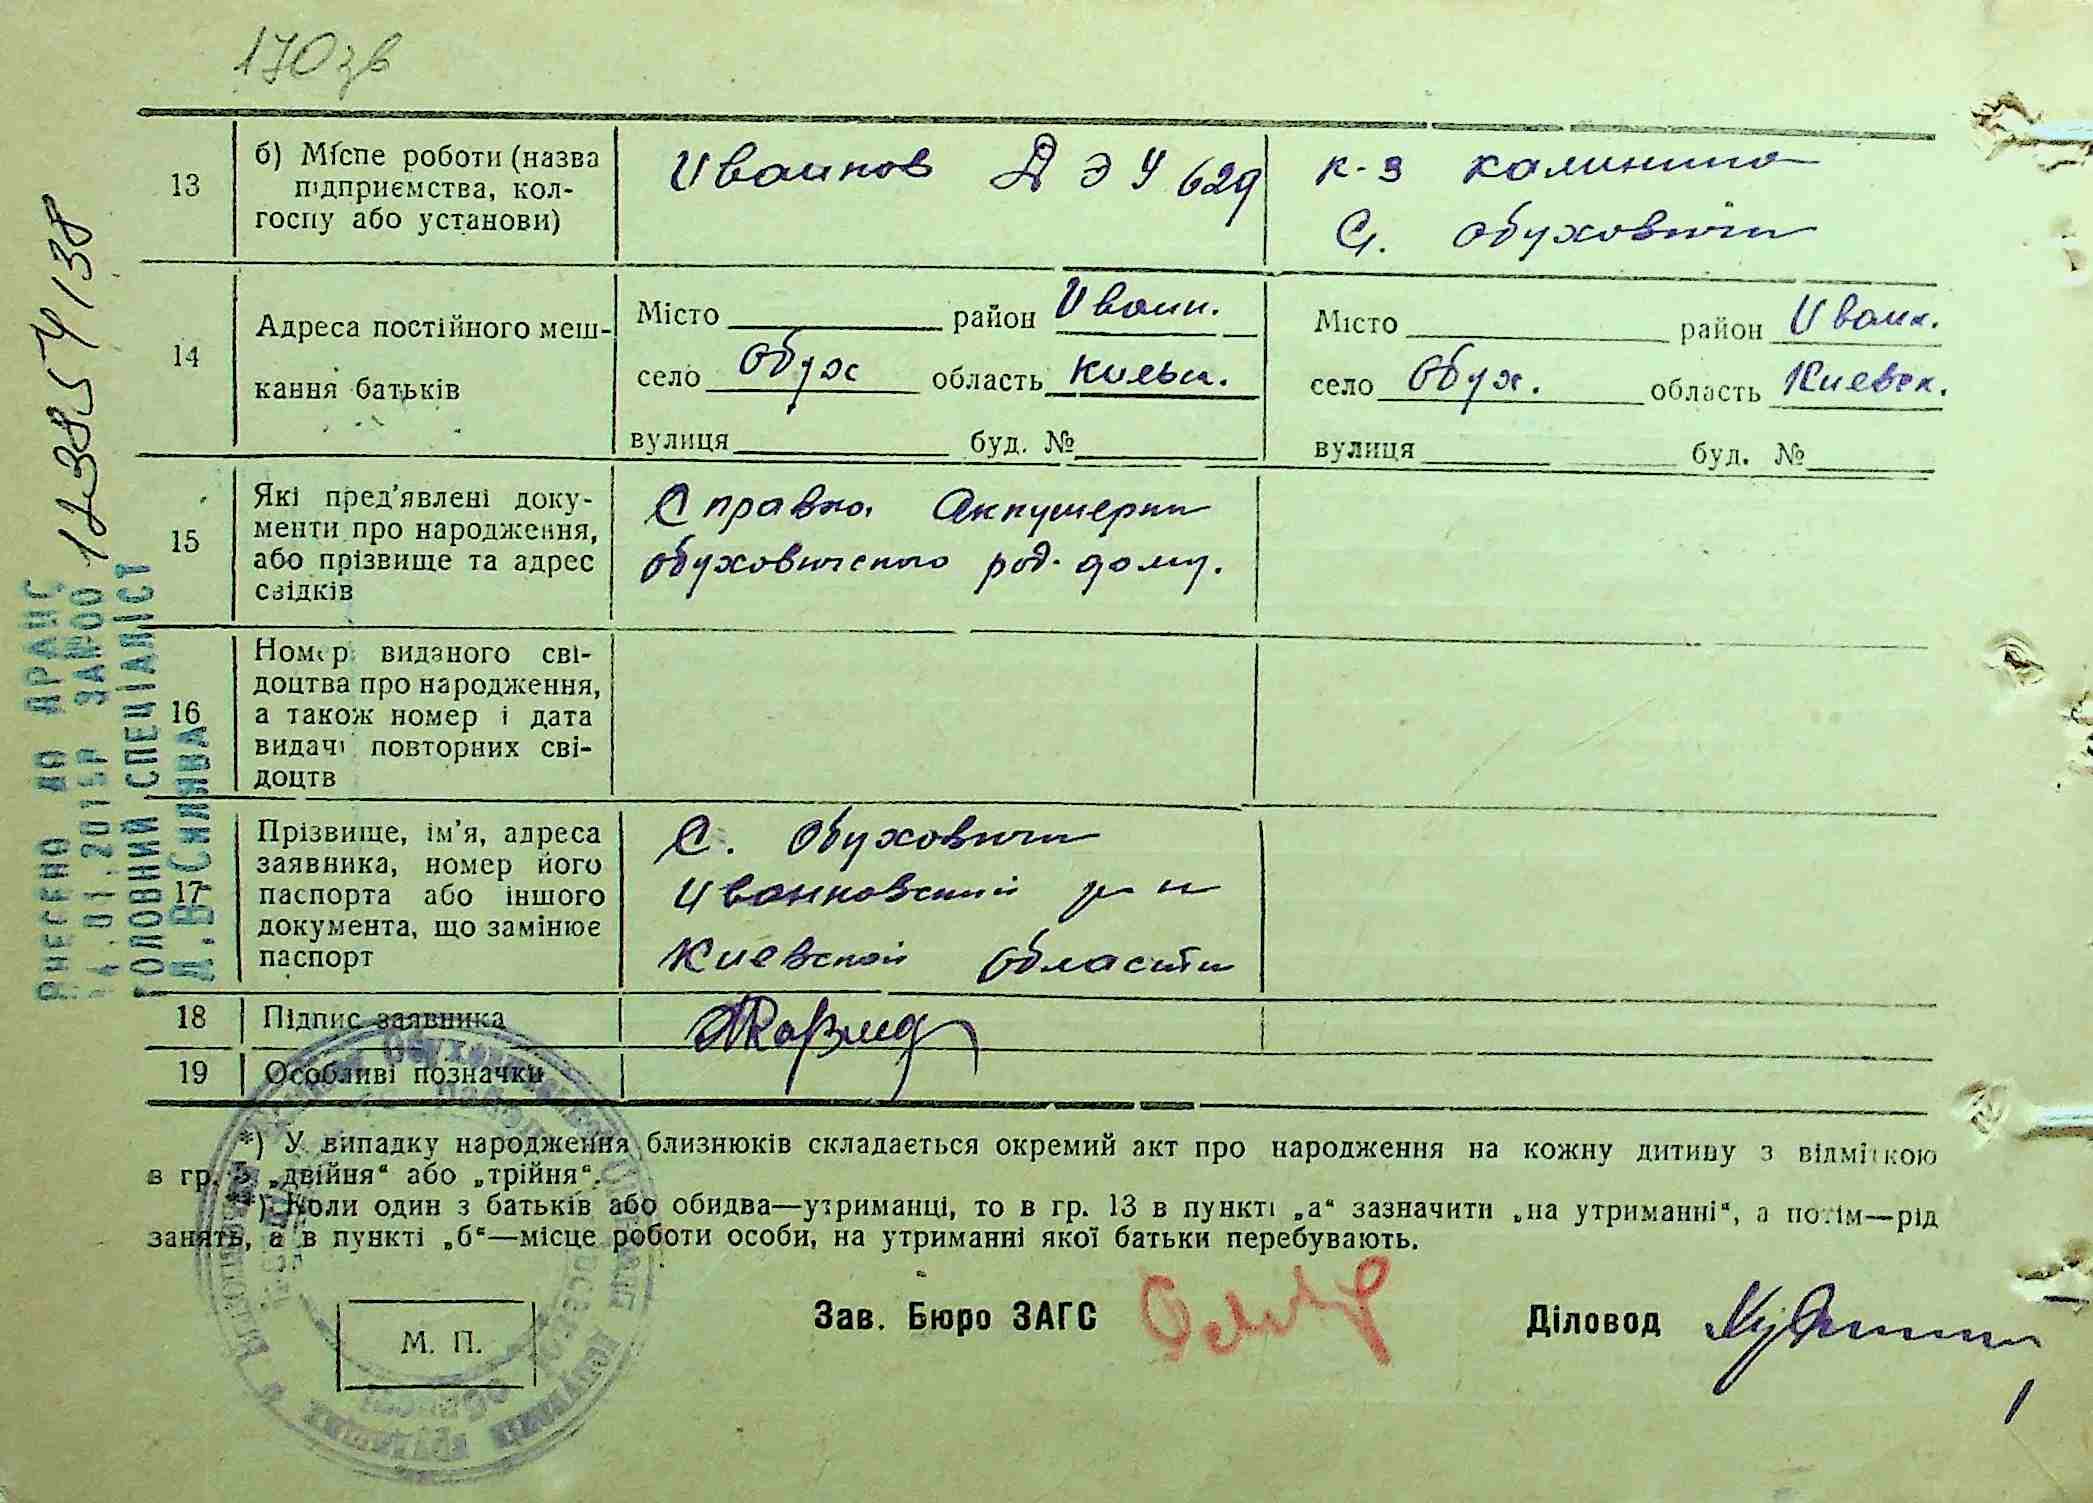 170зв
13
б) Місце роботи (назва
підприємства, кол-
госпу або установи)
Иванков ДЭУ 629
к-з калинина
С. Обуховичи
14
Адреса постійного меш-
кання батьків
Місто район Иванк.
село Обух область Киевск.
вулиця буд. №
Місто район Иванк.
село Обух. область Киевск.
вулиця буд. №
15
Які пред'явлені доку-
менти про народження,
або прізвище та адрес
свідків
Справка Аккушерки
Обуховического род-дому.
16
Номер виданого сві-
доцтва про народження,
а також номер і дата
видачі повторних сві-
доцтв
17
Прізвище, ім'я, адреса
заявника, номер його
паспорта або іншого
документа, що замінює
паспорт
С. Обуховичи
Иванковский р-н
Киевской области
18
Підпис заявника
19
Особливі позначки
*) У випадку народження близнюків складається окремий акт про народження на кожну дитину з відміткою
в гр. 5 „двійня“ або „трійня“.
**) Коли один з батьків або обидва—утриманці, то в гр. 13 в пункті „а“ зазначити „на утриманні“, а потім—рід
занять, а в пункті „б“—місце роботи особи, на утриманні якої батьки перебувають.
М. П.
Зав. Бюро ЗАГС
Діловод
ВНЕСЕНО ДО ДРАЦС
14.01.2015Р ЗА№00 123857138
ГОЛОВНИЙ СПЕЦІАЛІСТ